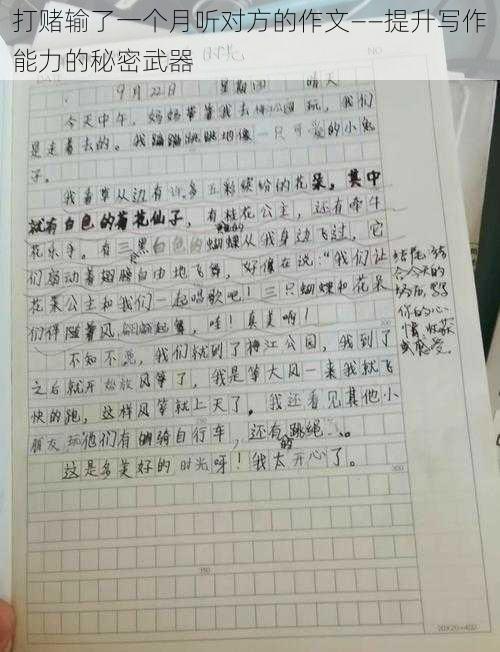 打赌输了一个月听对方的作文——提升写作
能力的秘密武器
时光
NO
9月22日 星期四 晴天
今天中午，妈妈带着我去梅江公园玩，我们
是走着去的。我蹦蹦跳跳地像一只可爱的小兔
子。
我看草丛边有许多五彩缤纷的花朵。其中
就有白色的菊花仙子，有桂花公主，还有牵牛
花乐手。有三只黑白色的蝴蝶从我身边飞过，它
们扇动着翅膀自由地飞舞，好像在说：“我们让
花朵公主和我们一起唱歌吧！三只蝴蝶和花朵
们伴随着风翩翩起舞，哇！真美啊！
不知不觉，我们就到了梅江公园，我到了
之后就开始放风筝了，我是等大风一来我就飞
快的跑，这样风筝就上天了。我还看见其他小
朋友玩他们有的骑自行车，还有的跳绳……
这是多美好的时光呀！我太开心了。
结尾，结
合今天的
写
你的心
情、收获
或感受。
200
300
350
20X20=400